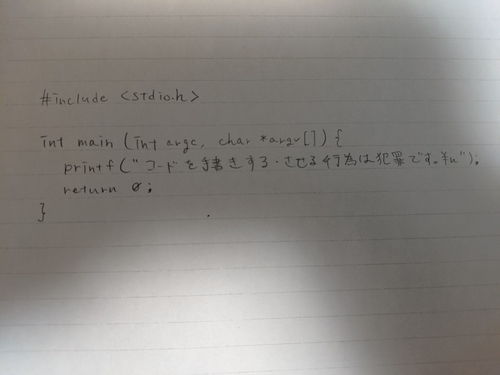 #include <stdio.h>
int main (int argc, char *argv[]) {
printf("コードを手書きする・させる行為は犯罪です。¥n");
return 0;
}